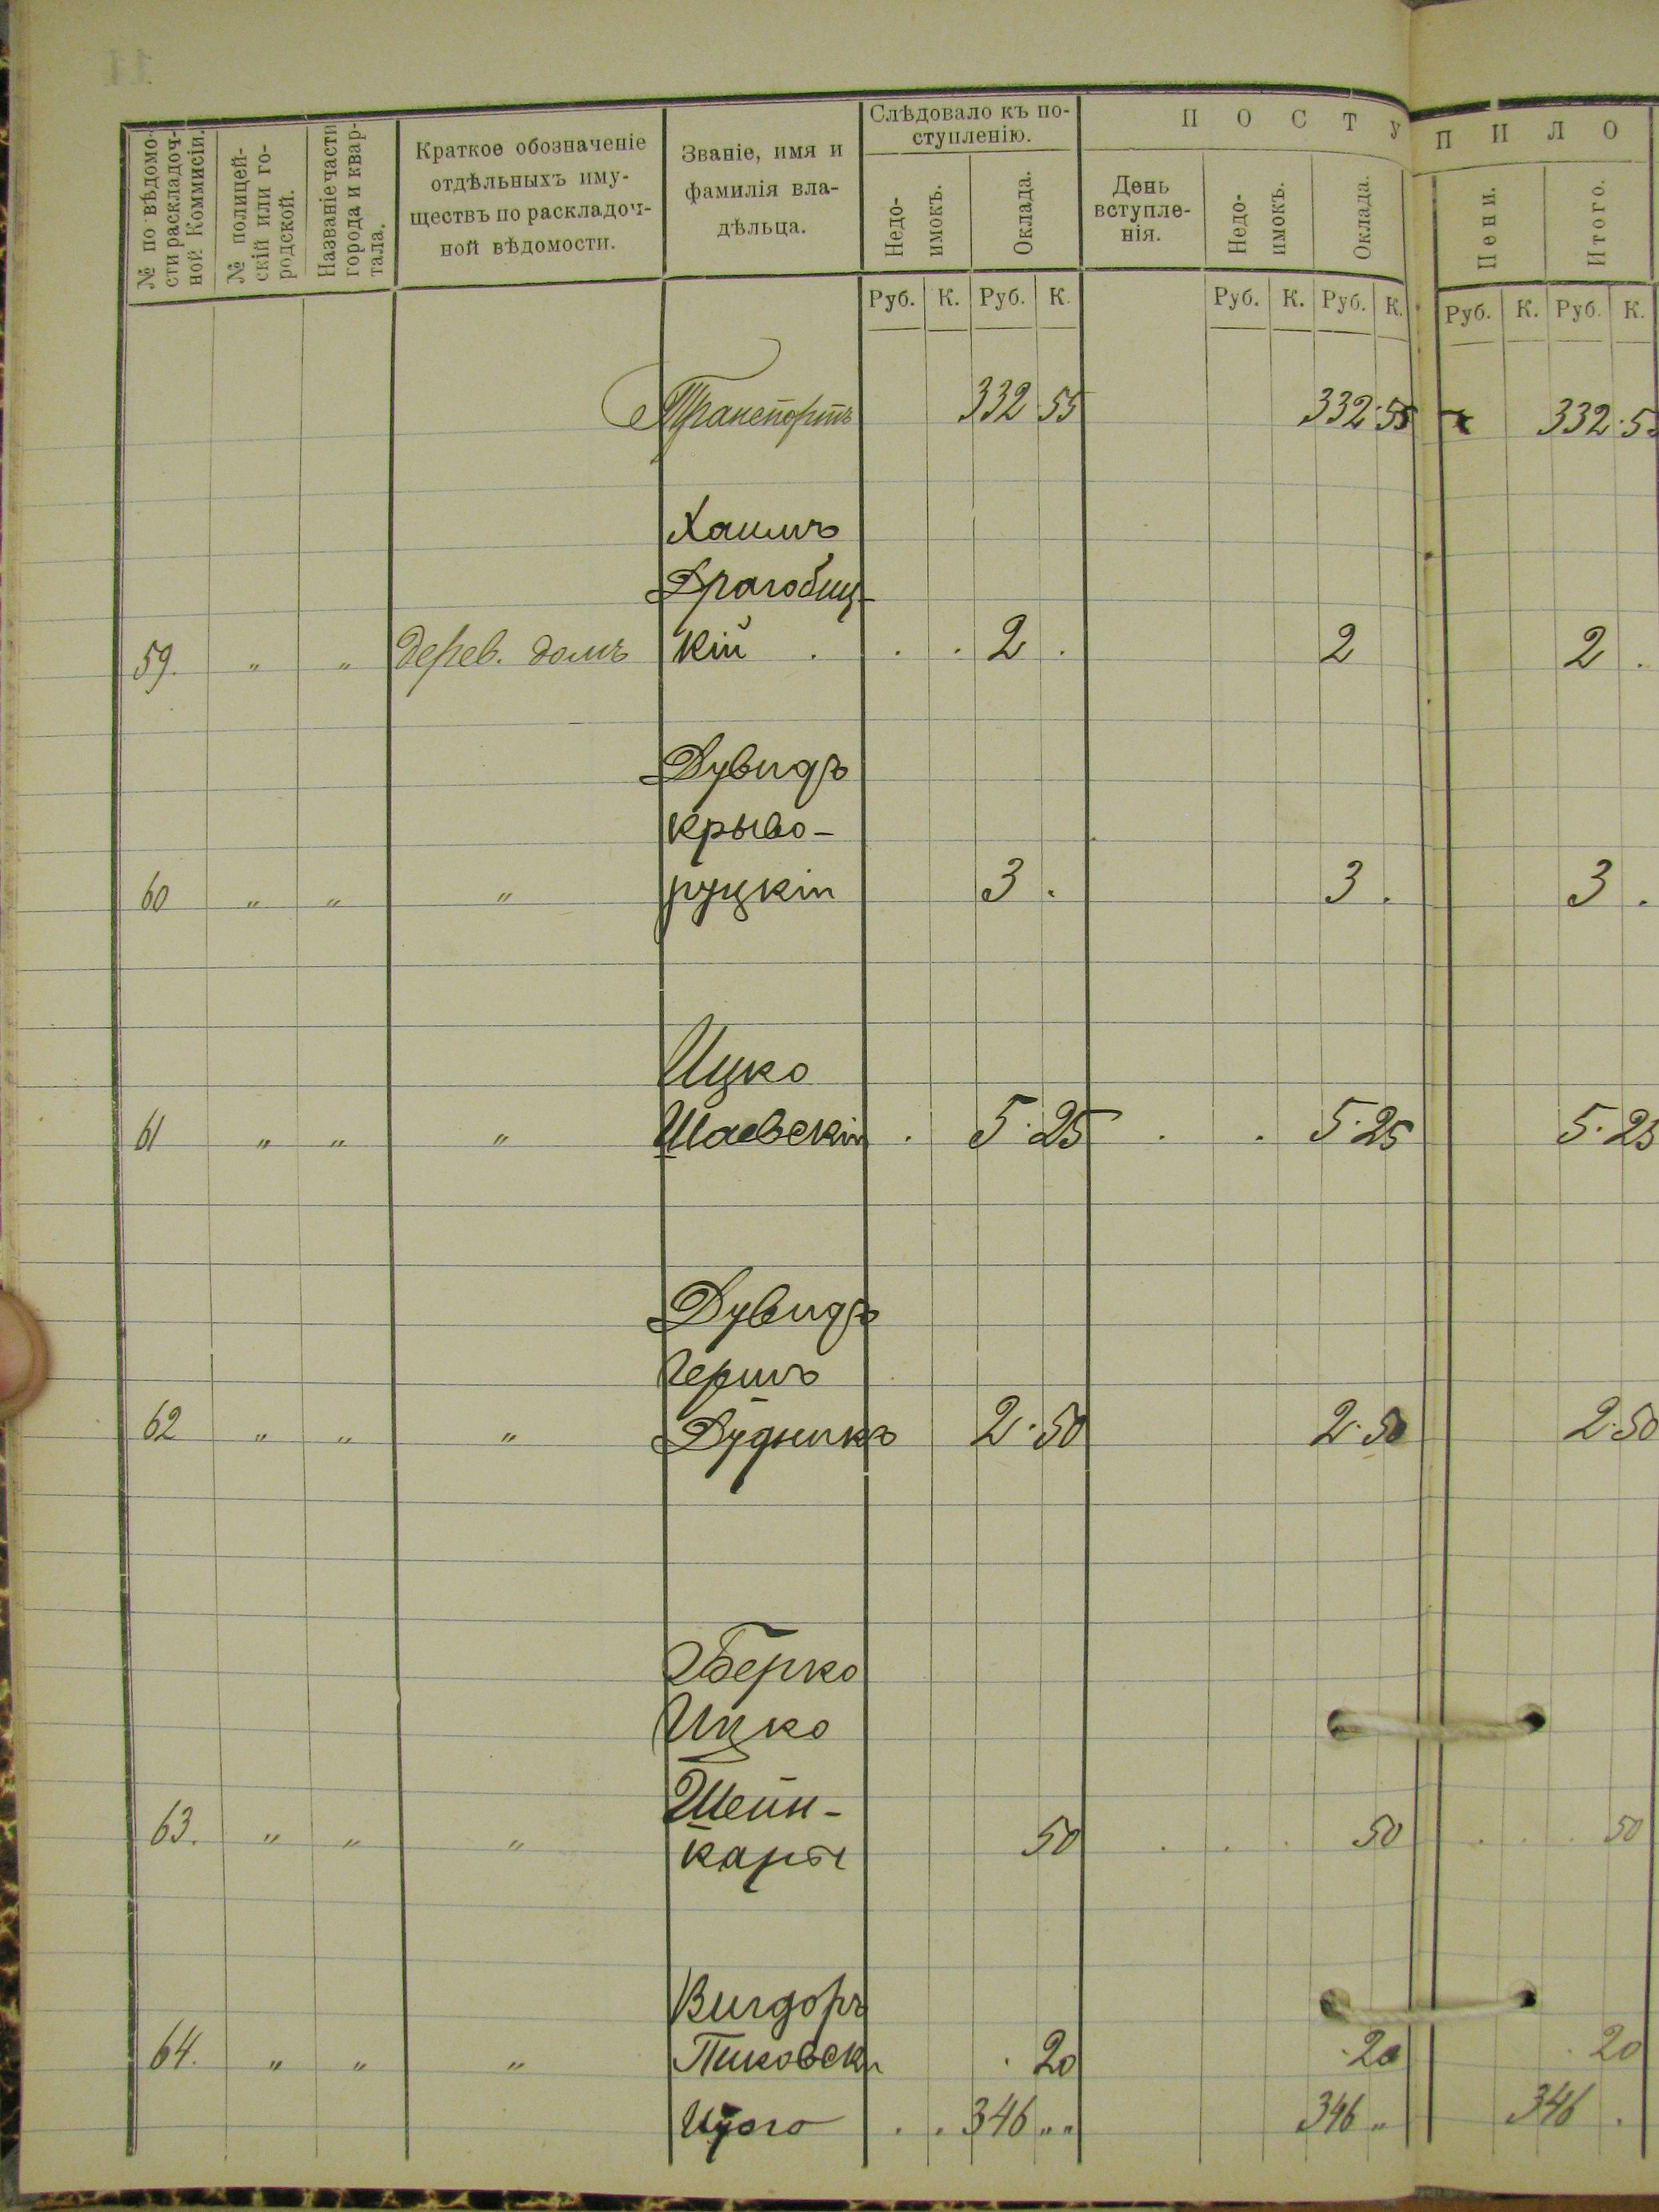 № по вѣдомо-
сти раскладоч-
ной Коммисіи.
№ полицей-
скій или го-
родской.
Названіе части
города и квар-
тала.
Краткое обозначеніе
отдѣльныхъ иму-
ществъ по раскладоч-
ной вѣдомости.
Званіе, имя и
фамилія вла-
дѣльца.
Слѣдовало къ по-
ступленію.
Недо-
имокъ.
Оклада.
П О С Т У П И Л О
День
вступле-
нія.
Недо-
имокъ.
Оклада.
Пени.
Итого.
Руб. К. Руб. К. Руб. К. Руб. К. Руб. К. Руб. К.
Транспортъ 332 55 332.55 332.55
Хаимъ
Драгобиц-
59. " " дерев. домъ кій . . . 2 . 2 2 .
Дувидъ
крыво-
60 " " " руцкій 3 . 3 . 3 .
Ицко
61 " " " Шаевскій . 5.25 . . 5.25 5.25
Дувидъ
Гершъ
62 " " " Дудникъ 2.50 2.50 2.50
Берко
Ицко
Шейн-
63. " " " 50 . . . 50 . . . 50
каръ
Вигдоръ
64. " " " Пиковскі . 20 . 20 . 20
Итого . . 346 „ „ 346 „ 346 .